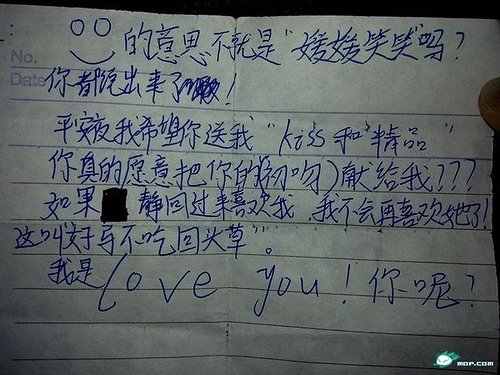 的意思不就是"媛媛笑笑"吗?
No.
Date
你都说出来了!
平安夜我希望你送我"kiss和精品"
你真的愿意把你的(初吻)献给我???
如果 静回过来喜欢我,我不会再喜欢她了!
这叫好马不吃回头草"。
我是love you!你呢?
MOP.COM